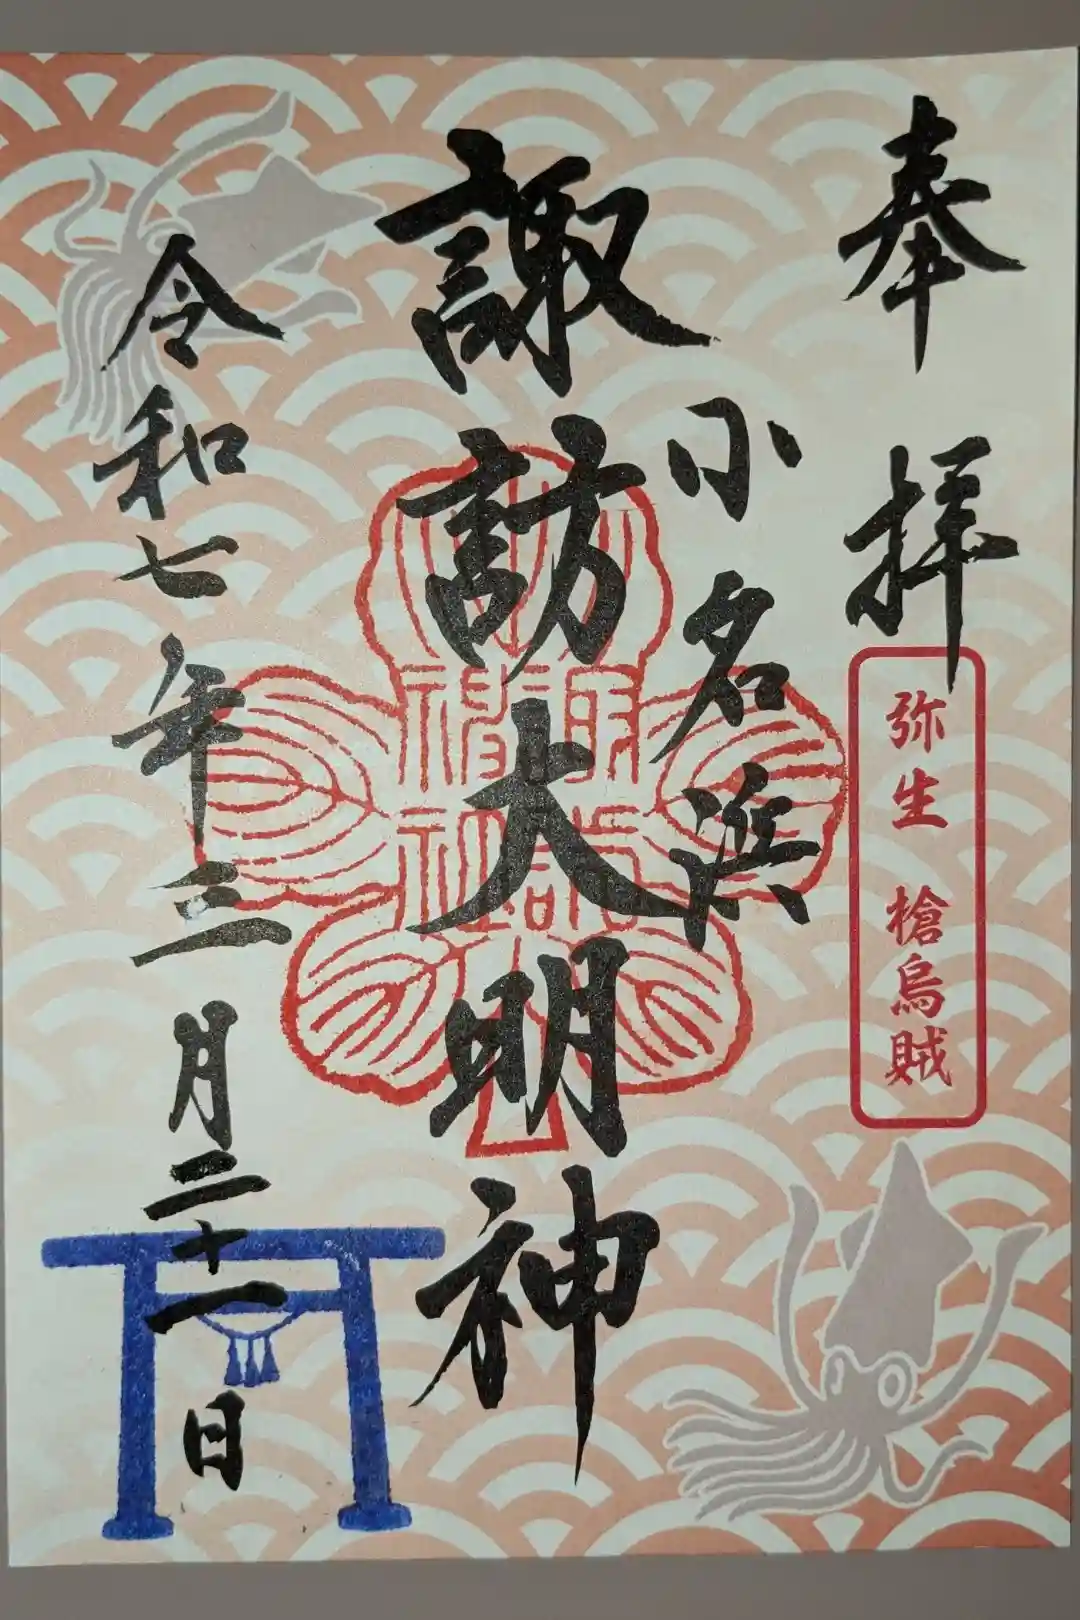 奉拝
弥生 槍烏賊
小名浜
諏訪大明神
諏訪
神社
令和七年三月二十一日